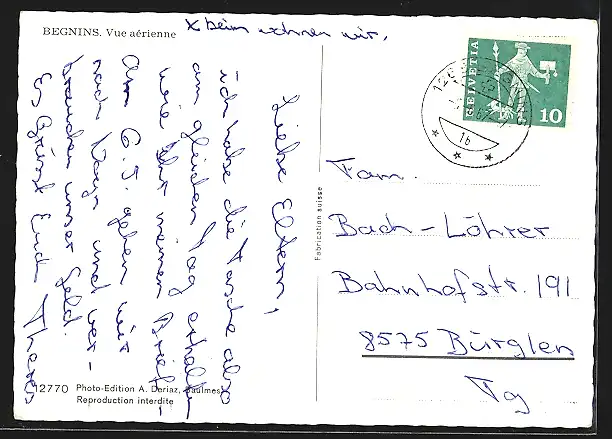 BEGNINS. Vue aérienne
x beim wohnen wir.
Liebe Eltern,
ich habe die Tasche also
am gleichen Tag erhalten
wie Ihr meinen Brief.
Am 6.5. gehen wir
nach und ver-
brauchen unser Geld.
Es Grüsst Euch Theres
HELVETIA
10
16
Fam.
Bach-Löhrer
Bahnhofstr. 191
8575 Bürglen
Tg
Fabrication suisse
12770 Photo-Edition A. Deriaz, Baulmes
Reproduction interdite